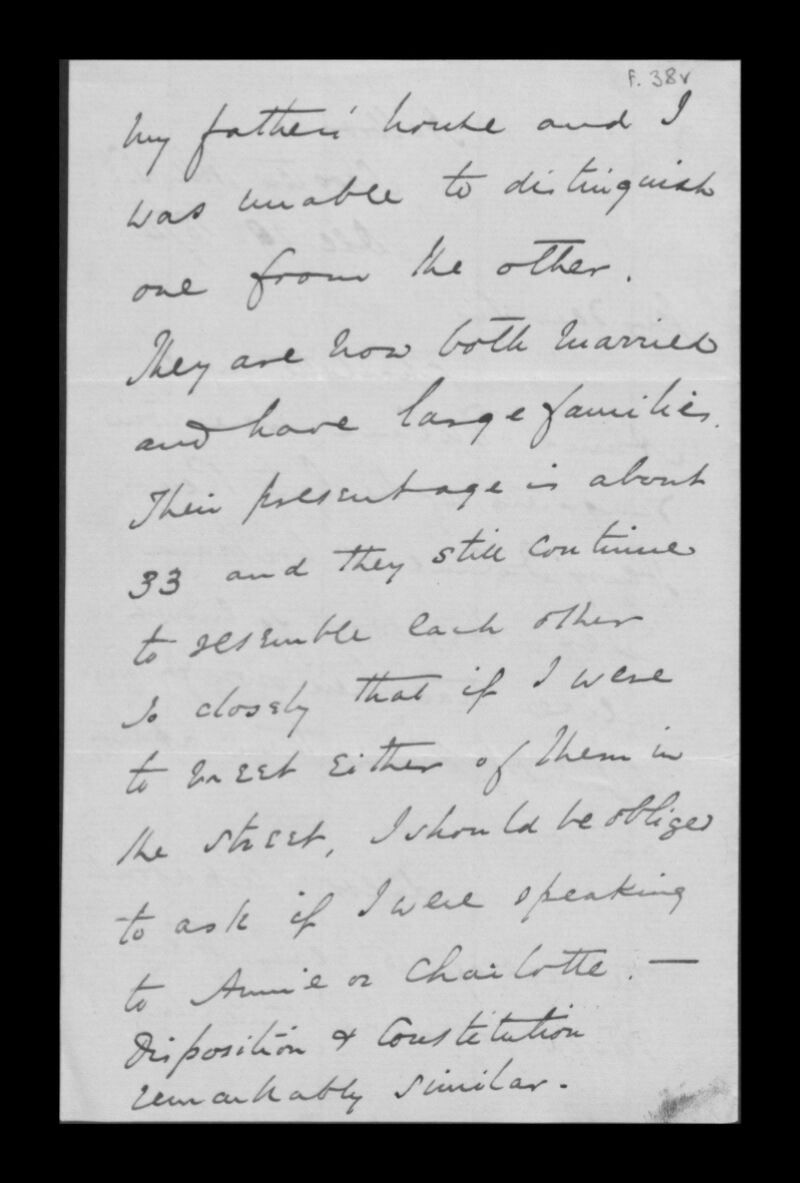 f. 38v
My father's house and I
was unable to distinguish
one from the other.
They are now both married
and have large families.
Their present age is about
33 and they still continue
to resemble each other
so closely that if I were
to meet either of them in
the street, I should be obliged
to ask if I were speaking
to Annie or Charlotte. —
Disposition & Constitution
remarkably similar.